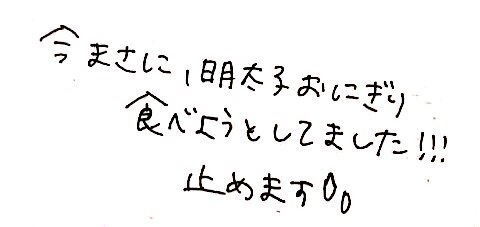 今まさに、明太子おにぎり
食べようとしてました!!!
止めます。。